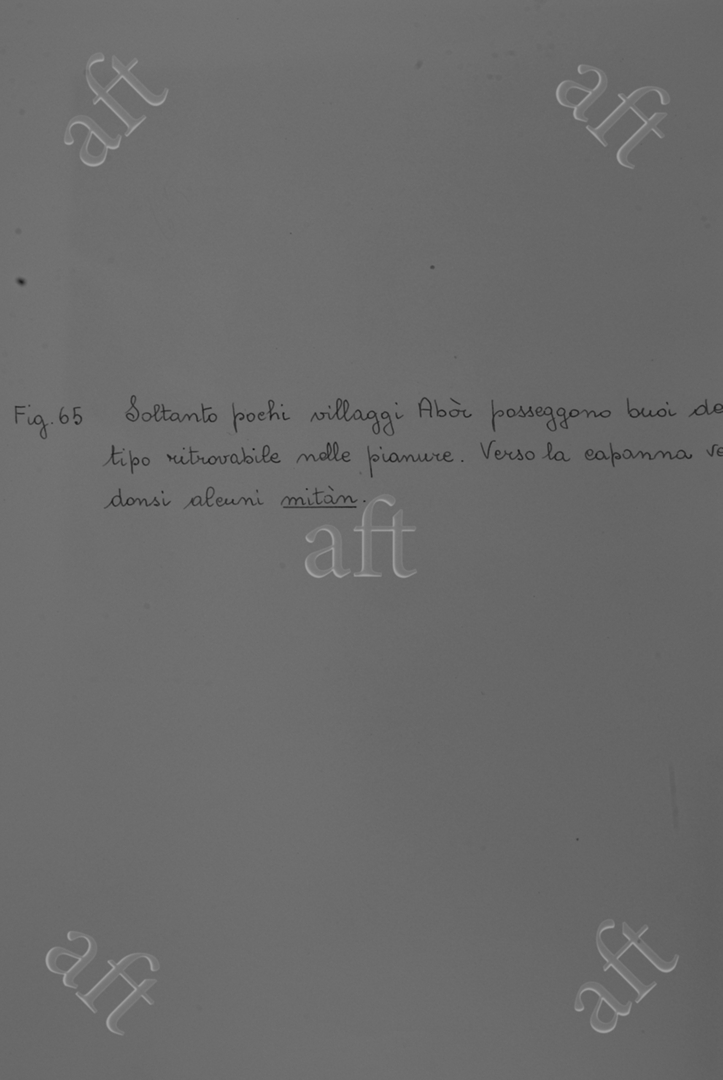 aft
aft
Fig. 65 Soltanto pochi villaggi Abòr posseggono buoi de
tipo ritrovabile nelle pianure. Verso la capanna ve
donsi alcuni mitàn.
aft
aft
aft